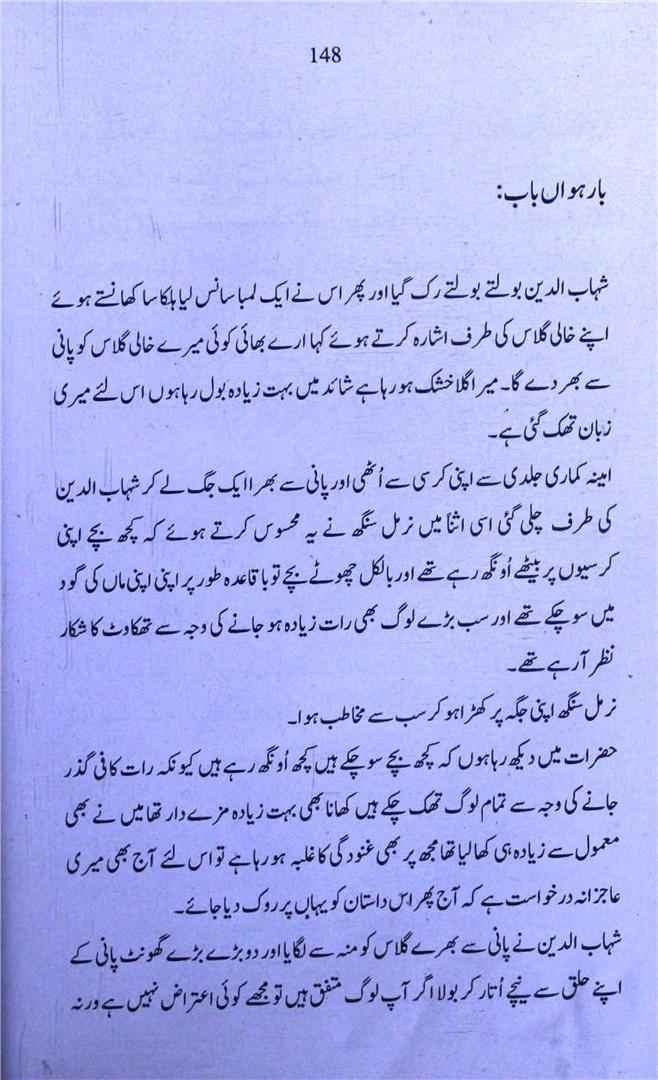 148
بارہواں باب:
شہاب الدین بولتے بولتے رک گیا اور پھر اس نے ایک لمبا سانس لیا ہلکا سا کھانستے ہوئے
اپنے خالی گلاس کی طرف اشارہ کرتے ہوئے کہا ارے بھائی کوئی میرے خالی گلاس کو پانی
سے بھر دے گا۔ میرا گلا خشک ہو رہا ہے شائد میں بہت زیادہ بول رہا ہوں اس لئے میری
زبان تھک گئی ہے۔
امینہ کماری جلدی سے اپنی کرسی سے اُٹھی اور پانی سے بھرا ایک جگ لے کر شہاب الدین
کی طرف چلی گئی اسی اثنأ میں نرمل سنگھ نے یہ محسوس کرتے ہوئے کہ کچھ بچے اپنی
کرسیوں پر بیٹھے اُونگھ رہے تھے اور بالکل چھوٹے بچے تو باقاعدہ طور پر اپنی اپنی ماں کی گود
میں سو چکے تھے اور سب بڑے لوگ بھی رات زیادہ ہو جانے کی وجہ سے تھکاوٹ کا شکار
نظر آ رہے تھے۔
نرمل سنگھ اپنی جگہ پر کھڑا ہو کر سب سے مخاطب ہوا۔
حضرات میں دیکھ رہا ہوں کہ کچھ بچے سو چکے ہیں کچھ اُونگھ رہے ہیں کیونکہ رات کافی گذر
جانے کی وجہ سے تمام لوگ تھک چکے ہیں کھانا بھی بہت زیادہ مزے دار تھا میں نے بھی
معمول سے زیادہ ہی کھا لیا تھا مجھ پر بھی غنودگی کا غلبہ ہو رہا ہے تو اس لئے آج بھی میری
عاجزانہ درخواست ہے کہ آج پھر اس داستان کو یہاں پر روک دیا جائے۔
شہاب الدین نے پانی سے بھرے گلاس کو منہ سے لگایا اور دو بڑے بڑے گھونٹ پانی کے
اپنے حلق سے نیچے اُتار کر بولا اگر آپ لوگ متفق ہیں تو مجھے کوئی اعتراض نہیں ہے ورنہ